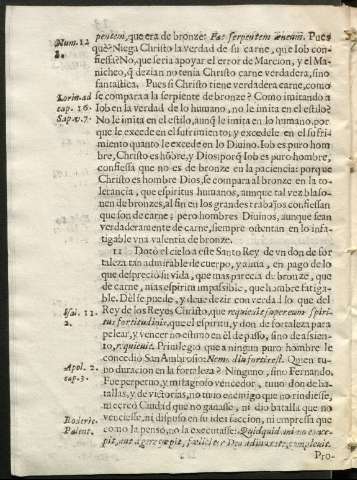 Num. 12
2.
pentem, que era de bronze: Fac serpentem æneum. Pues
què? Niega Christo la verdad de su carne, que Iob con-
fiessa? No, que seria apoyar el error de Marcion, y el Ma-
nicheo, q̃ dezian no tenia Christo carne verdadera, sino
fantastica. Pues si Christo tiene verdadera carne, como
se compara a la serpiente de bronze? Como imitando a
Iob en la verdad de lo humano, no le imita en el estilo?
No le imita en el estilo, aunq̃ le imita en lo humano, por
que le excede en el sufrimiento, y excedele en el sufri-
miento quanto le excede en lo Diuino. Iob es puro hom
bre, Christo es hõbre, y Dios; por q̃ Iob es puro hombre,
confiessa que no es de bronze en la paciencia: porque
Christo es hombre Dios, se compara al bronze en la to-
lerancia, que espiritus humanos, aunque tal vez blaso-
nen de bronzes, al fin en los grandes trabajos confiessan
que son de carne; pero hombres Diuinos, aunque sean
verdaderamente de carne, siempre ostentan en lo infa-
tigable vna valentia de bronze.
Lorin. ad
cap. 16.
Sap. v. 7.
11 Dotò el cielo a este Santo Rey de vn don de for
taleza tan admirable de cuerpo, y alma, en pago de lo
que despreciò su vida, que mas parecia de bronze, que
de carne, mas espiritu impassible, que hombre fatiga-
ble. Dèl se puede, y deue dezir con verdad lo que del
Rey de los Reyes Christo, que requieuit super eum spiri-
tus fortitudinis, que el espiritu, y don de fortaleza para
pelear, y vencer no estuuo en èl de passo, sino de assien-
to, requieuit. Priuilegio que a ninguno puro hombre le
concediò San Ambrosio: Nemo diu fortis est. Quien tu-
uo duracion en la fortaleza? Ninguno, sino Fernando.
Fue perpetuo, y milagroso vencedor, tuuo don de ba-
tallas, y de victorias, no tuuo enemigo que no rindiesse,
ni cercò Ciudad que no ganasse, ni dio batalla que no
venciesse, ni dispuso en su idea faccion, ni empressa que
como la pensò, no la executasse: Quidquid
pit, aut agere cœpit, fœliciter Deo adiuuante compleuit.
Isai. 11.
2.
Apol. 2.
cap. 3.
Roderic.
Palent.
Pro-